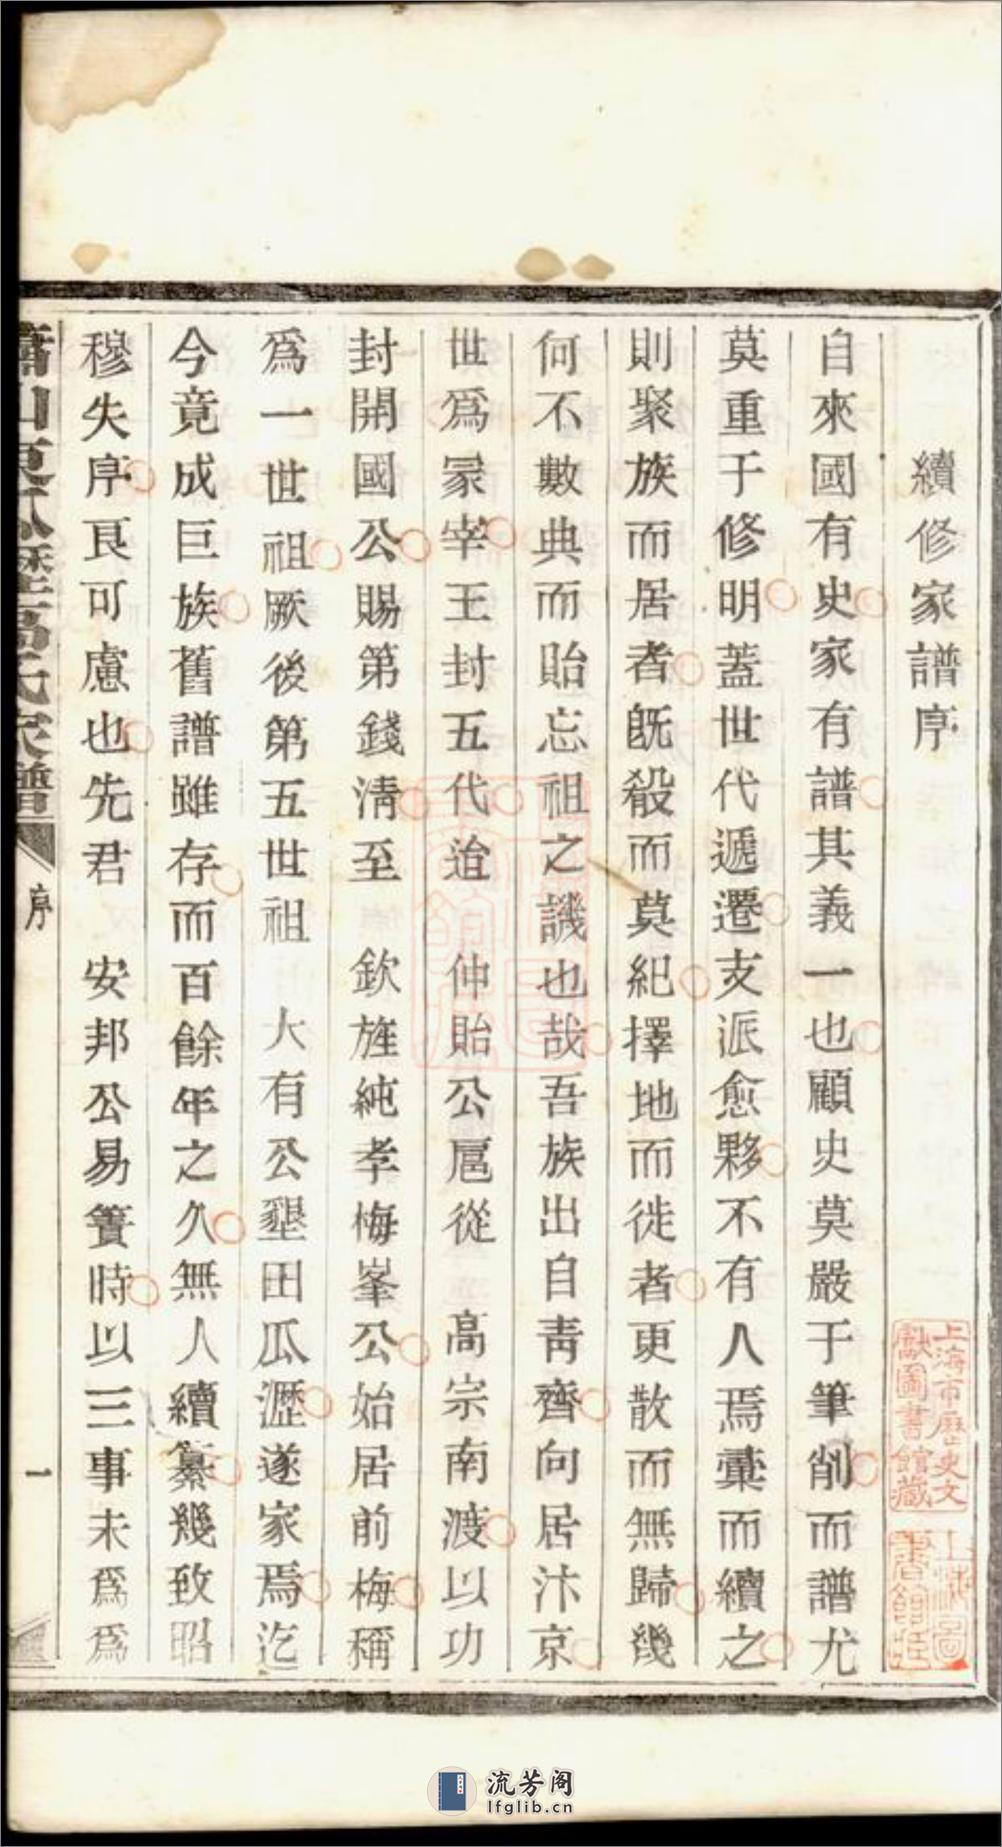 續修家譜序
自來國有史家有譜其義一也顧史莫嚴于筆削而譜尤
莫重于修明蓋世代遞遷支派愈夥不有人焉彙而續之
則聚族而居者旣殽而莫紀擇地而徙者更散而無歸幾
何不數典而貽忘祖之譏也哉吾族出自靑齊向居汴京
世爲冢宰王封五代迨 仲貽公扈從 高宗南渡以功
封開國公賜第錢淸至 欽旌純孝梅峯公始居前梅稱
爲一世祖厥後第五世祖 大有公墾田瓜瀝遂家焉迄
今竟成巨族舊譜雖存而百餘年之久無人續纂幾致昭
穆失序艮可慮也先君 安邦公易簀時以三事未爲爲
蕭山 瀝高氏家譜
序
一
上海市歷史文
獻圖書館藏
上海圖
書館藏
流芳阁
lfglib.cn